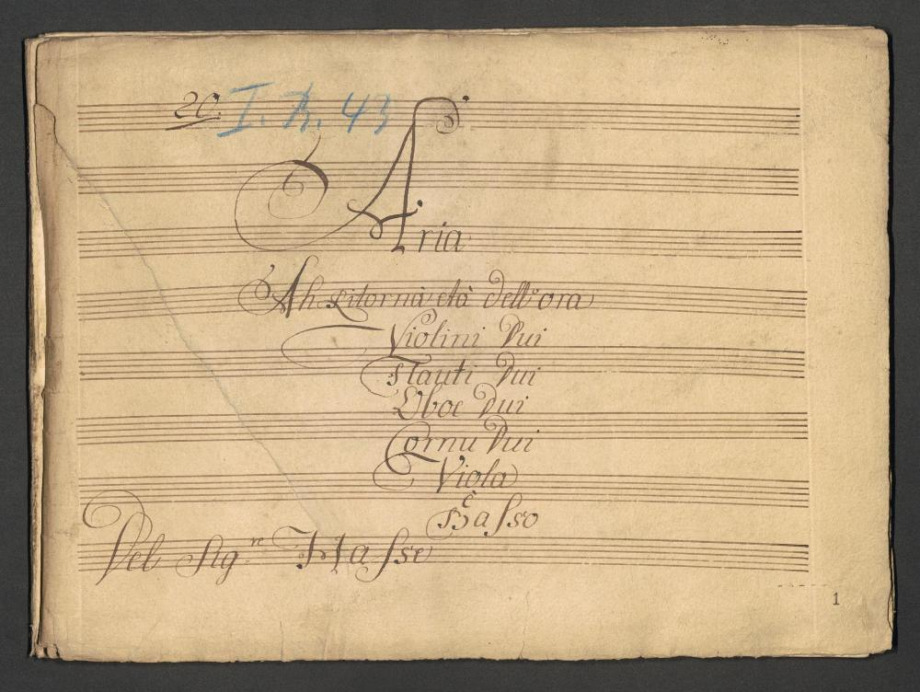 20. I. R. 43
Aria
Ah ritorna età dell'oro
Violini Dui
Flauti Dui
Oboe Dui
Cornu Dui
Viola
è
Basso
Del Sig.re Hasse
1